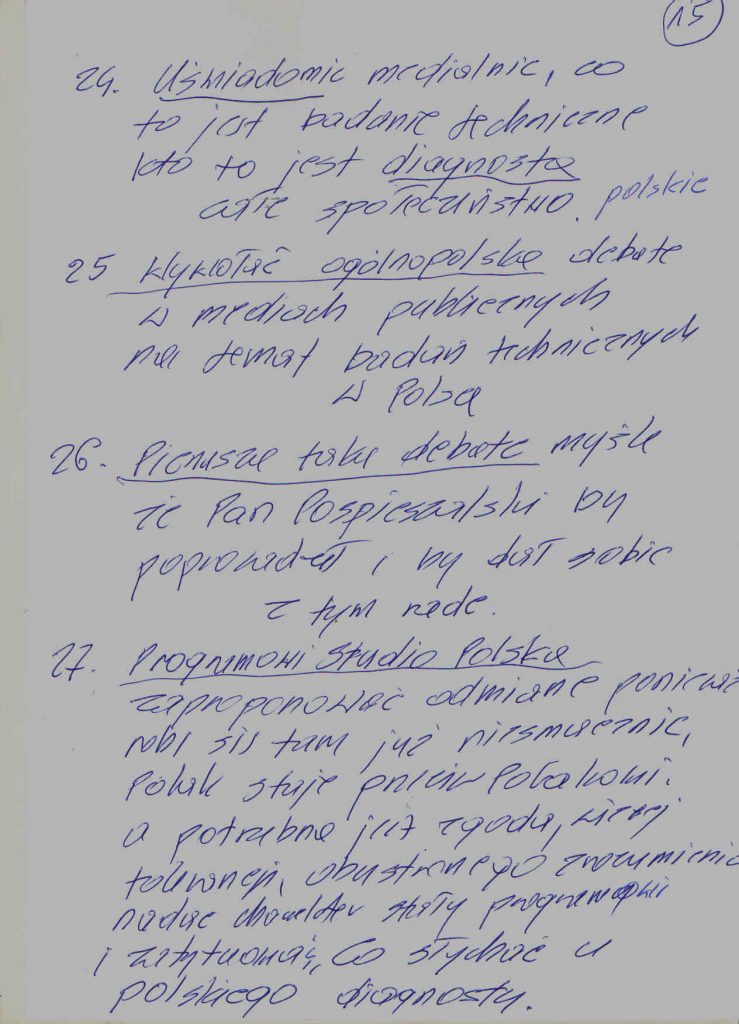 15
24. Uświadomic medialnie, co
to jest badanie techniczne
kto to jest diagnosta
całe społeczeństwo. polskie
25 Wywołać ogólnopolską debate
w mediach publicznych
na temat badań technicznych
w Polsce
26. Pierwsze taką debate myśle
że Pan Pospieszalski by
poprowadził i by dał sobie
z tym rade.
27. Programowi Studio Polska
zaproponować odmiane ponieważ
robi się tam już niesmacznie,
Polak staje przeciw Polakowi.
a potrzebna jest zgoda, wiecej
tolerancji, obustronnego zrozumienia
nadac charakter stały programowi
i zatytuować, Co słychać u
polskiego diagnosty.